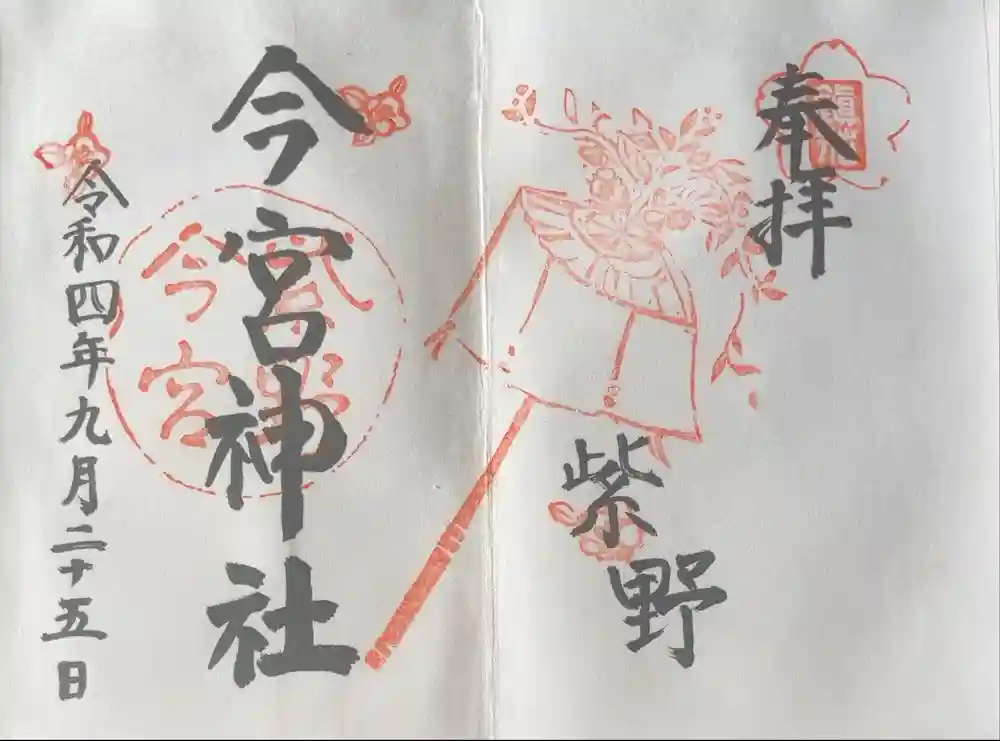 奉拝
紫野
今宮神社
紫野
今宮
令和四年九月二十五日